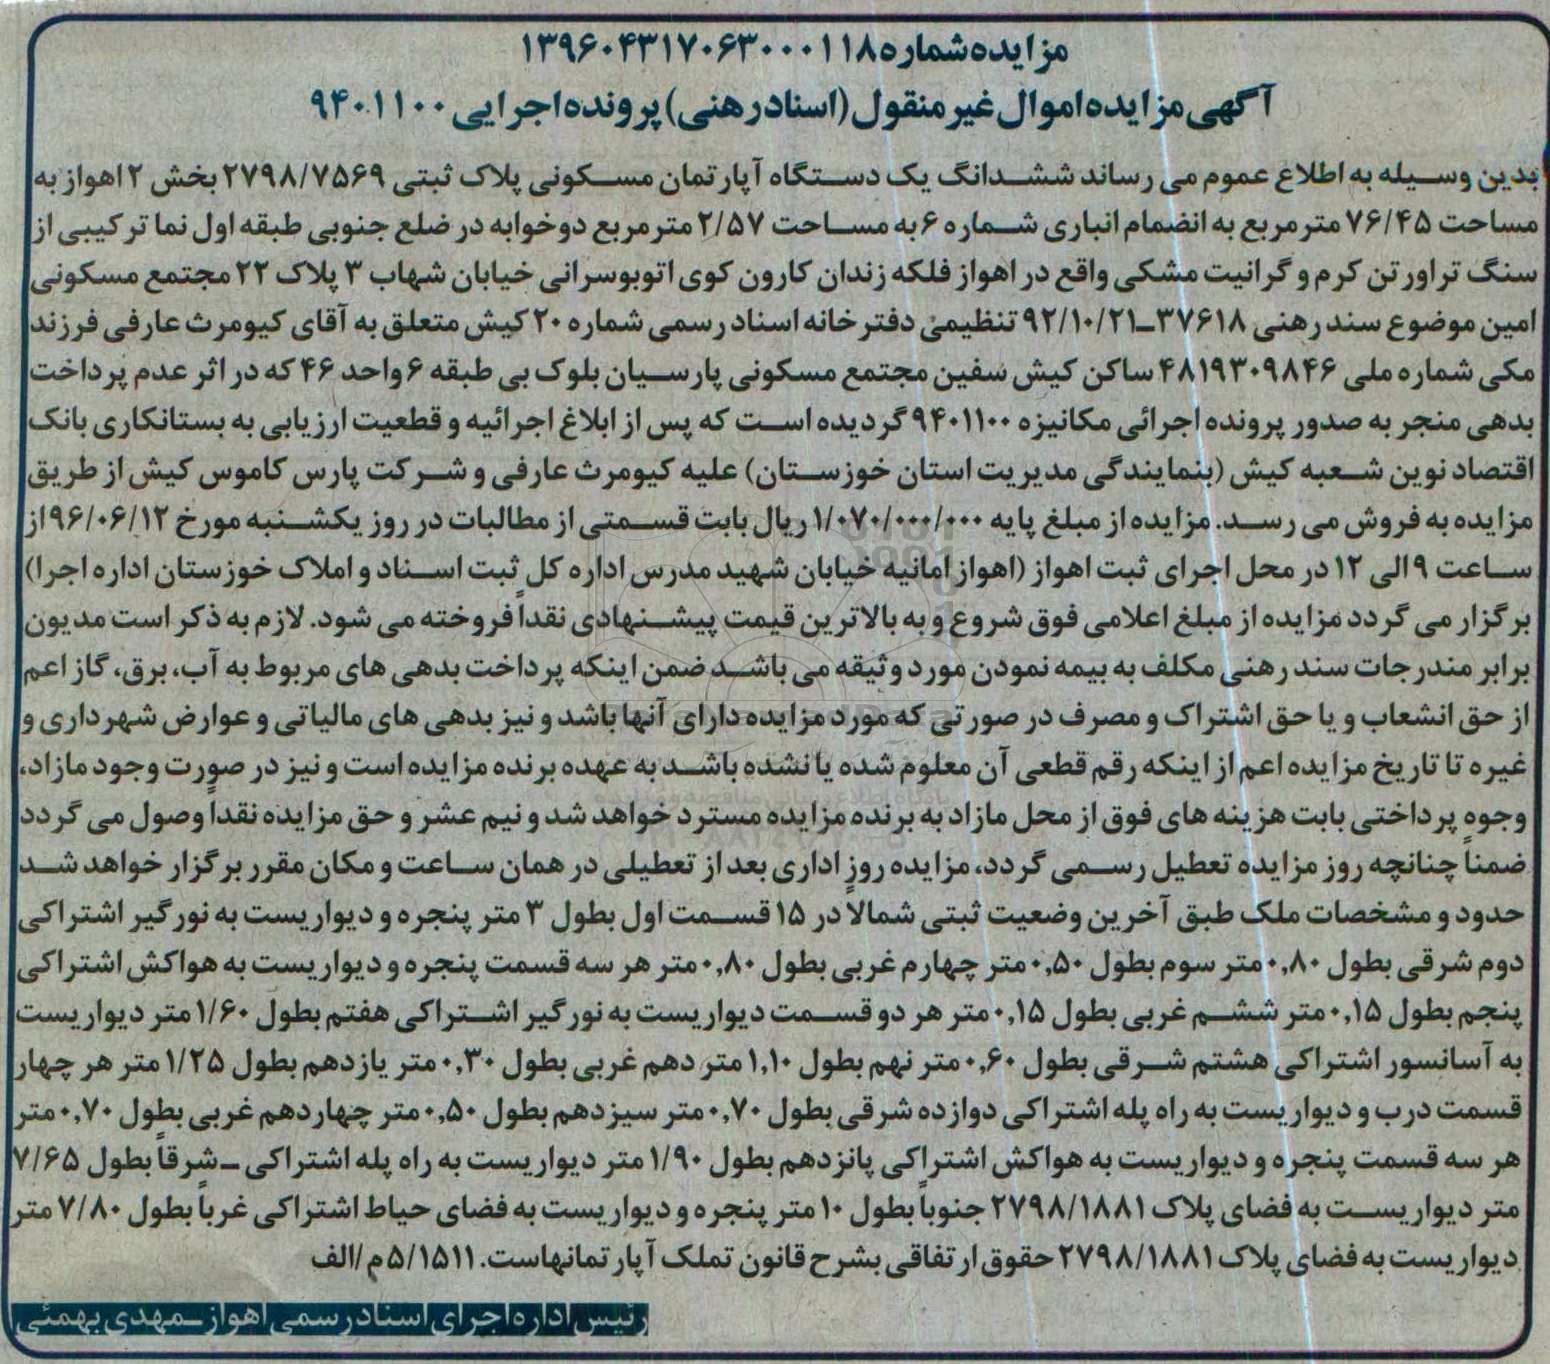 مزایده شماره ۱۳۹۶۰۴۳۱۷۰۶۳۰۰۰۱۱۸
آگهی مزایده اموال غیر منقول (اسناد رهنی) پرونده اجرایی ۹۴۰۱۱۰۰
بدین وسیله به اطلاع عموم می رساند ششدانگ یک دستگاه آپارتمان مسکونی پلاک ثبتی ۲۷۹۸/۷۵۶۹ بخش ۲ اهواز به
مساحت ۷۶/۴۵ مترمربع به انضمام انباری شماره ۶ به مساحت ۲/۵۷ مترمربع دوخوابه در ضلع جنوبی طبقه اول نما ترکیبی از
سنگ تراورتن کرم و گرانیت مشکی واقع در اهواز فلکه زندان کارون کوی اتوبوسرانی خیابان شهاب ۳ پلاک ۲۲ مجتمع مسکونی
امین موضوع سند رهنی ۳۷۶۱۸-۹۲/۱۰/۲۱ تنظیمی دفترخانه اسناد رسمی شماره ۲۰ کیش متعلق به آقای کیومرث عارفی فرزند
مکی شماره ملی ۴۸۱۹۳۰۹۸۴۶ ساکن کیش سفین مجتمع مسکونی پارسیان بلوک بی طبقه ۶ واحد ۴۶ که در اثر عدم پرداخت
بدهی منجر به صدور پرونده اجرائی مکانیزه ۹۴۰۱۱۰۰ گردیده است که پس از ابلاغ اجرائیه و قطعیت ارزیابی به بستانکاری بانک
اقتصاد نوین شعبه کیش (بنمایندگی مدیریت استان خوزستان) علیه کیومرث عارفی و شرکت پارس کاموس کیش از طریق
مزایده به فروش می رسد. مزایده از مبلغ پایه ۱/۰۷۰/۰۰۰/۰۰۰ ریال بابت قسمتی از مطالبات در روز یکشنبه مورخ ۹۶/۰۶/۱۲ از
ساعت ۹ الی ۱۲ در محل اجرای ثبت اهواز (اهواز امانیه خیابان شهید مدرس اداره کل ثبت اسناد و املاک خوزستان اداره اجرا)
برگزار می گردد مزایده از مبلغ اعلامی فوق شروع و به بالاترین قیمت پیشنهادی نقداً فروخته می شود. لازم به ذکر است مدیون
برابر مندرجات سند رهنی مکلف به بیمه نمودن مورد وثیقه می باشد ضمن اینکه پرداخت بدهی های مربوط به آب، برق، گاز اعم
از حق انشعاب و یا حق اشتراک و مصرف در صورتی که مورد مزایده دارای آنها باشد و نیز بدهی های مالیاتی و عوارض شهرداری و
غیره تا تاریخ مزایده اعم از اینکه رقم قطعی آن معلوم شده یا نشده باشد به عهده برنده مزایده است و نیز در صورت وجود مازاد،
وجوه پرداختی بابت هزینه های فوق از محل مازاد به برنده مزایده مسترد خواهد شد و نیم عشر و حق مزایده نقداً وصول می گردد
ضمناً چنانچه روز مزایده تعطیل رسمی گردد، مزایده روز اداری بعد از تعطیلی در همان ساعت و مکان مقرر برگزار خواهد شد
حدود و مشخصات ملک طبق آخرین وضعیت ثبتی شمالاً در ۱۵ قسمت اول بطول ۳ متر پنجره و دیواریست به نورگیر اشتراکی
دوم شرقی بطول ۰,۸۰ متر سوم بطول ۰,۵۰ متر چهارم غربی بطول ۰,۸۰ متر هر سه قسمت پنجره و دیواریست به هواکش اشتراکی
پنجم بطول ۰,۱۵ متر ششم غربی بطول ۰,۱۵ متر هر دو قسمت دیواریست به نورگیر اشتراکی هفتم بطول ۱/۶۰ متر دیواریست
به آسانسور اشتراکی هشتم شرقی بطول ۰,۶۰ متر نهم بطول ۱,۱۰ متر دهم غربی بطول ۰,۳۰ متر یازدهم بطول ۱/۲۵ متر هر چهار
قسمت درب و دیواریست به راه پله اشتراکی دوازده شرقی بطول ۰,۷۰ متر سیزدهم بطول ۰,۵۰ متر چهاردهم غربی بطول ۰,۷۰ متر
هر سه قسمت پنجره و دیواریست به هواکش اشتراکی پانزدهم بطول ۱/۹۰ متر دیواریست به راه پله اشتراکی - شرقاً بطول ۷/۶۵
متر دیواریست به فضای پلاک ۲۷۹۸/۱۸۸۱ جنوباً بطول ۱۰ متر پنجره و دیواریست به فضای حیاط اشتراکی غرباً بطول ۷/۸۰ متر
دیواریست به فضای پلاک ۲۷۹۸/۱۸۸۱ حقوق ارتفاقی بشرح قانون تملک آپارتمانهاست. ۵/۱۵۱۱ م/الف
رئیس اداره اجرای اسناد رسمی اهواز - مهدی بهمئی